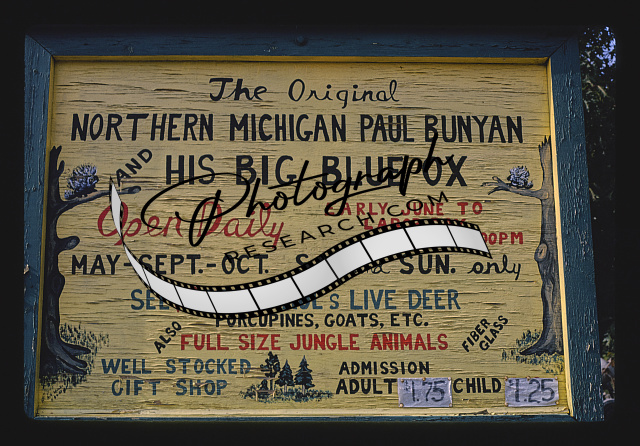 The Original
NORTHERN MICHIGAN PAUL BUNYAN
AND HIS BIG BLUE OX
Open Daily EARLY JUNE TO
LABOR
00PM
MAY-SEPT.-OCT. SUN. only
LIVE DEER
PORCUPINES, GOATS, ETC.
ALSO FULL SIZE JUNGLE ANIMALS FIBER GLASS
WELL STOCKED
GIFT SHOP
ADMISSION
ADULT $1.75 CHILD $1.25
Photograph
RESEARCH.COM